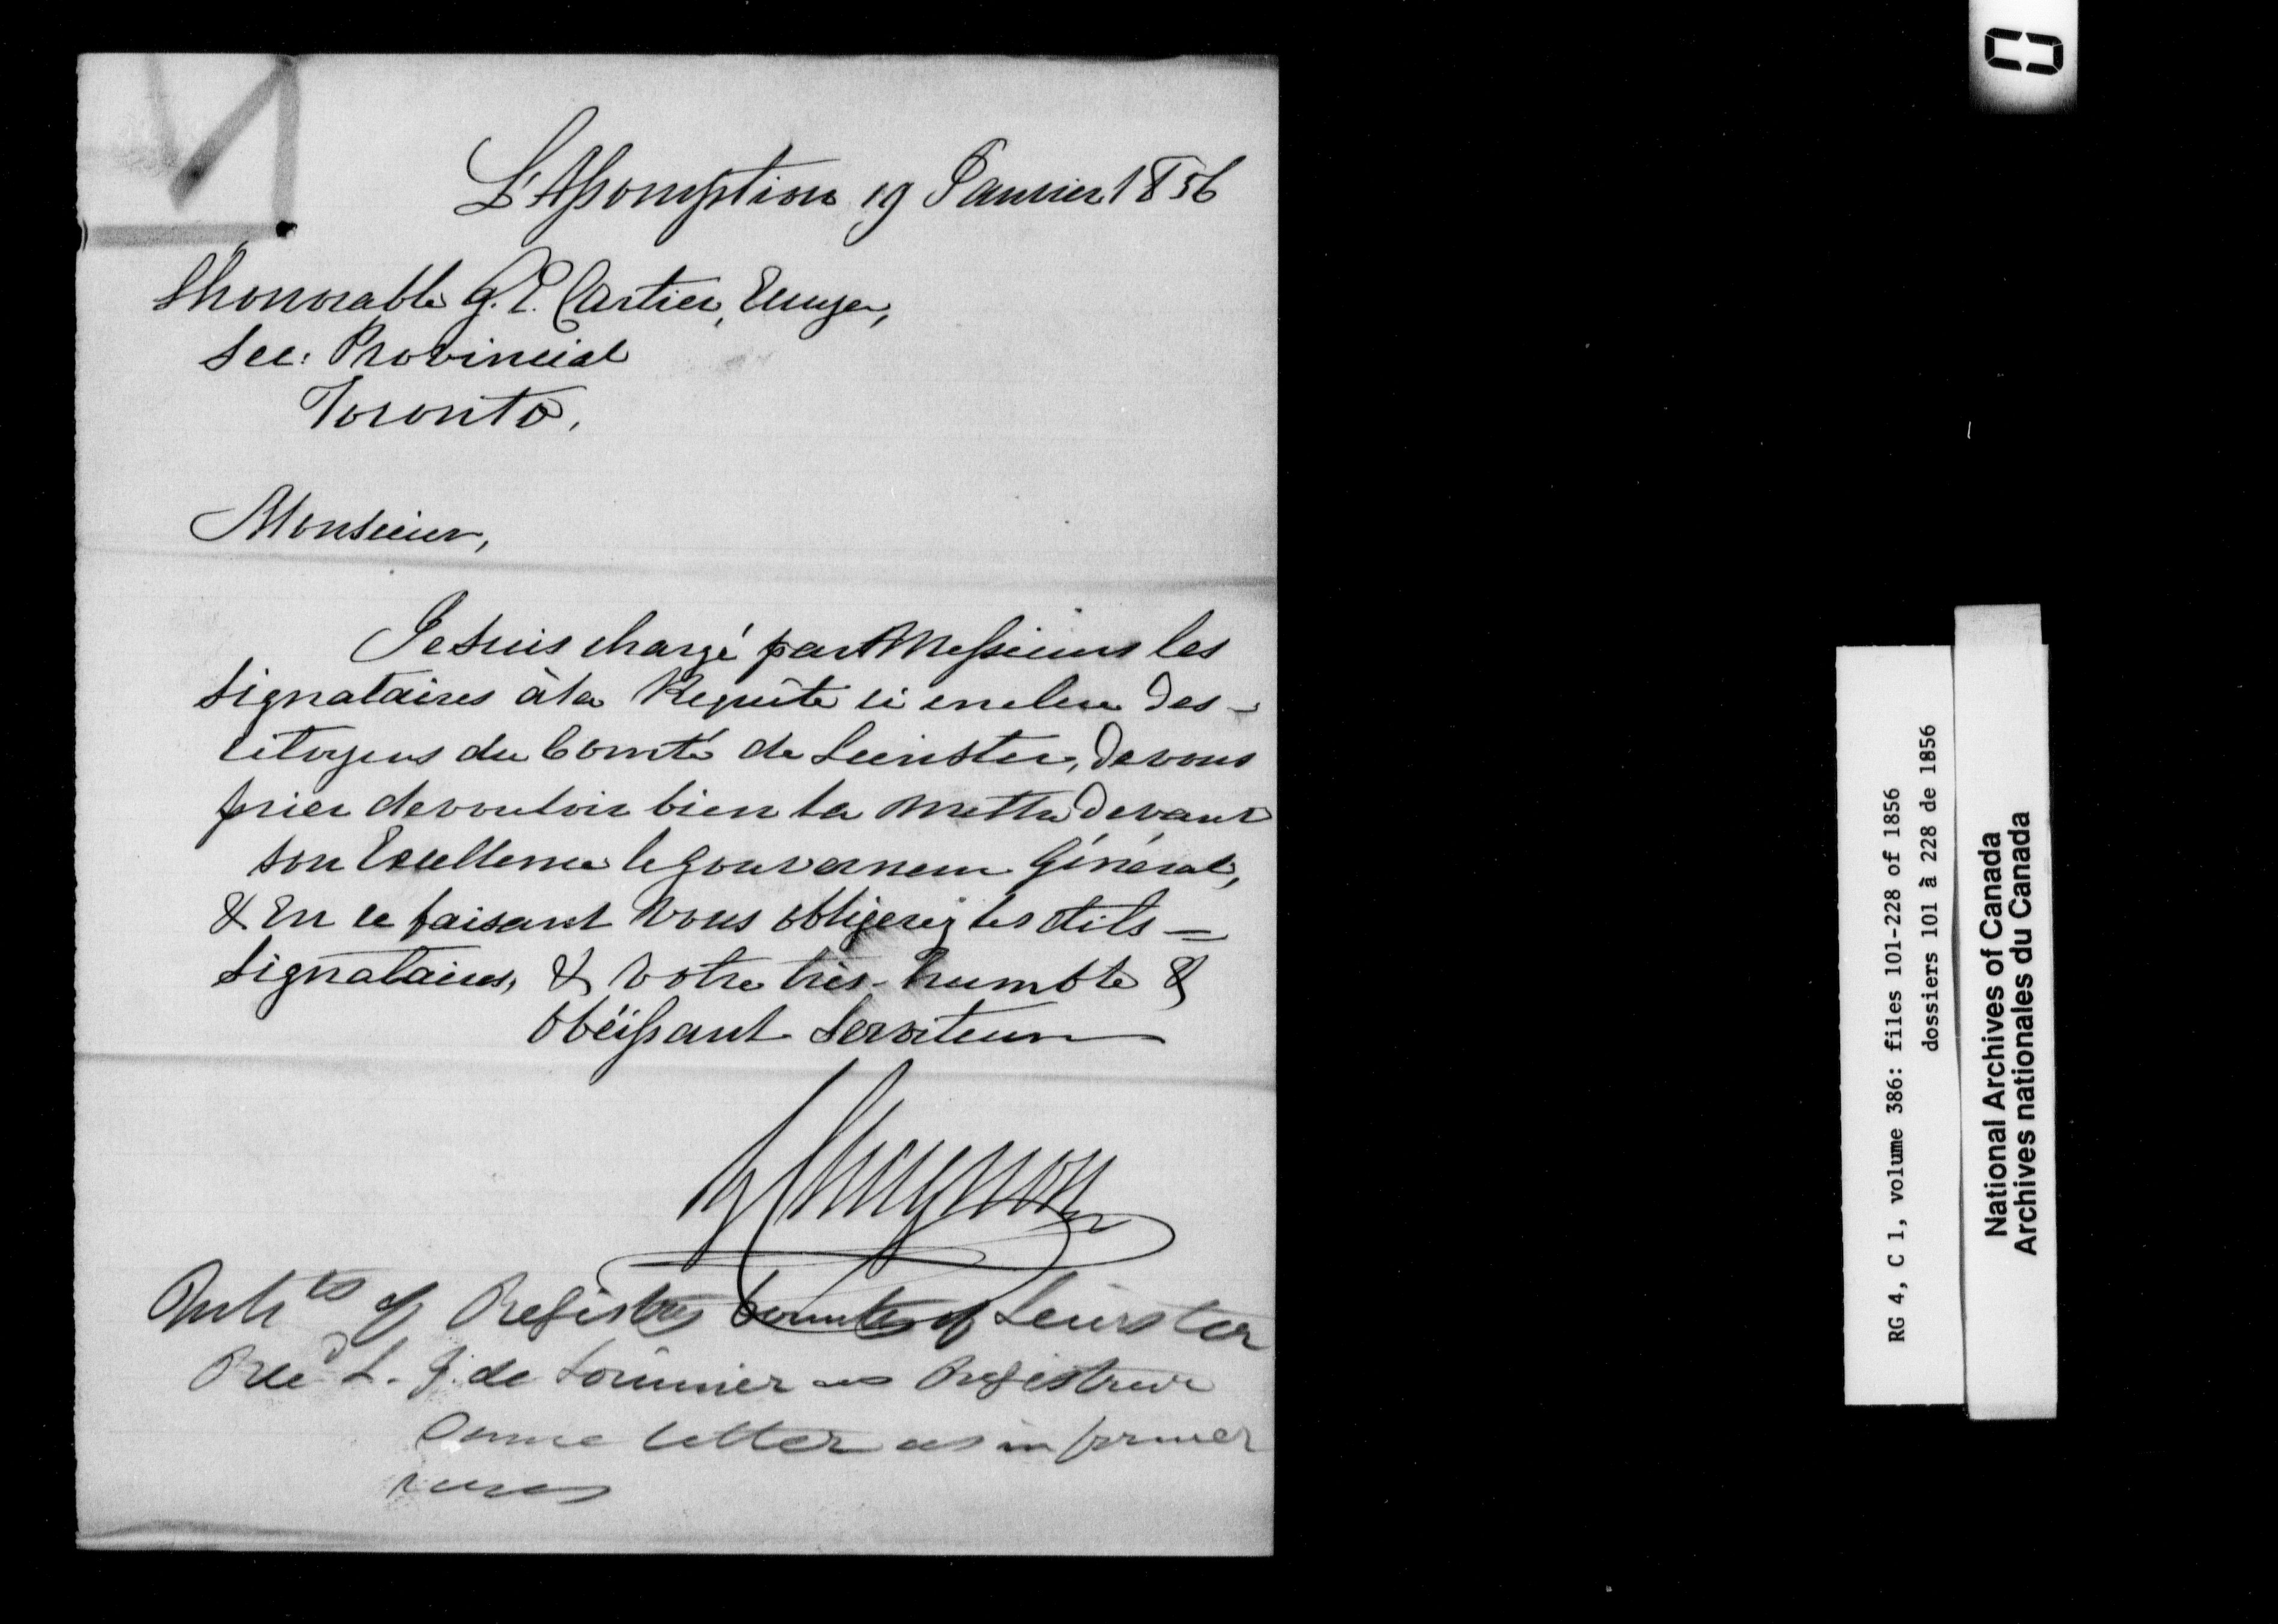 L'Assomption 19 Janvier 1856
L'honorable G. E. Cartier, Ecuyer,
Sec: Provincial
Toronto,
Monsieur,
Je suis chargé par Messieurs les
signataires à la Requête ci incluse des
citoyens du Comté de Leinster, de vous
prier de vouloir bien la mettre devant
son Excellence le Gouverneur Général,
& En ce faisant Vous obligerez les dits
signataires, & Votre très-humble &
obéissant Serviteur
of Leinster
L. J. de Lorimier as
Same letter as in former
RG 4, C 1, volume 386: files 101-228 of 1856
dossiers 101 à 228 de 1856
National Archives of Canada
Archives nationales du Canada